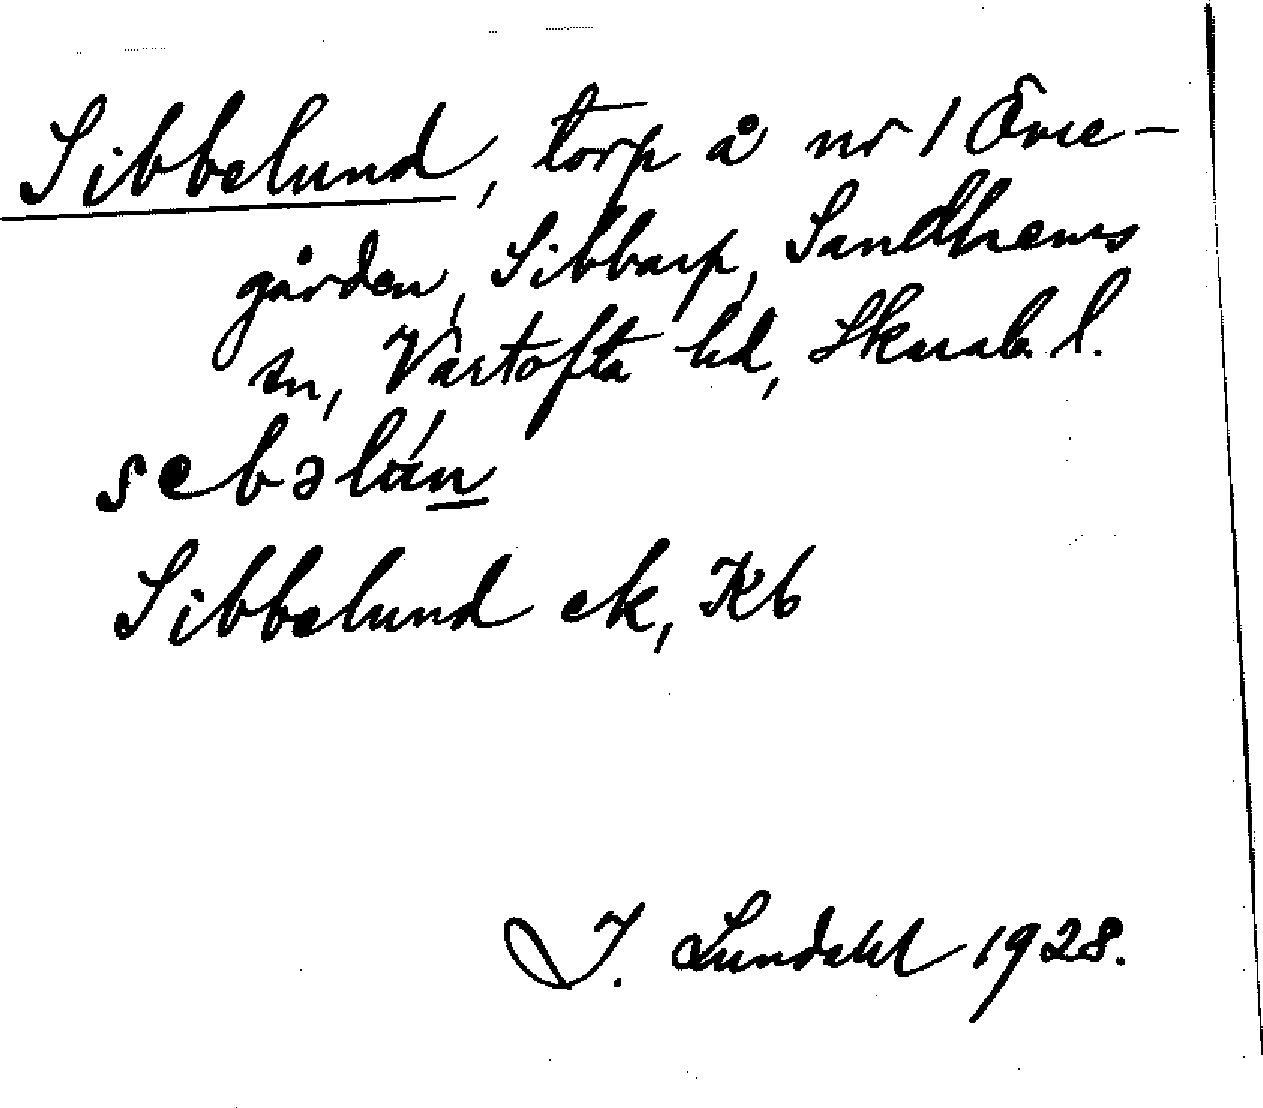 Sibbelund, torp å nr 1 Övre-
gården, Sibbarp, Sandhems
sn, Vartofta hd, Skarab. l.
sebəlún
Sibbelund ek, Kb
I. Lundahl 1928.